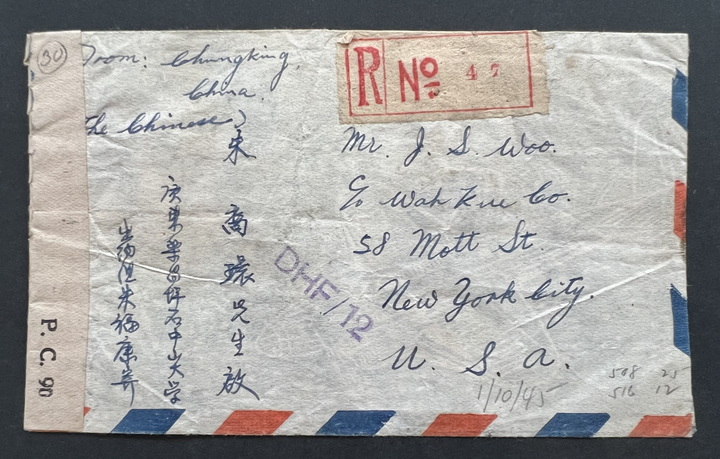 30
From: Chungking,
China.
The Chinese)
R No 47
Mr. J. S. Woo.
C/o Wah Kue Co.
58 Mott St.
New York City.
U. S. A.
先生啟
坪石中山大学
DHF/12
P. C. 90
1/10/45
508 25
516 12